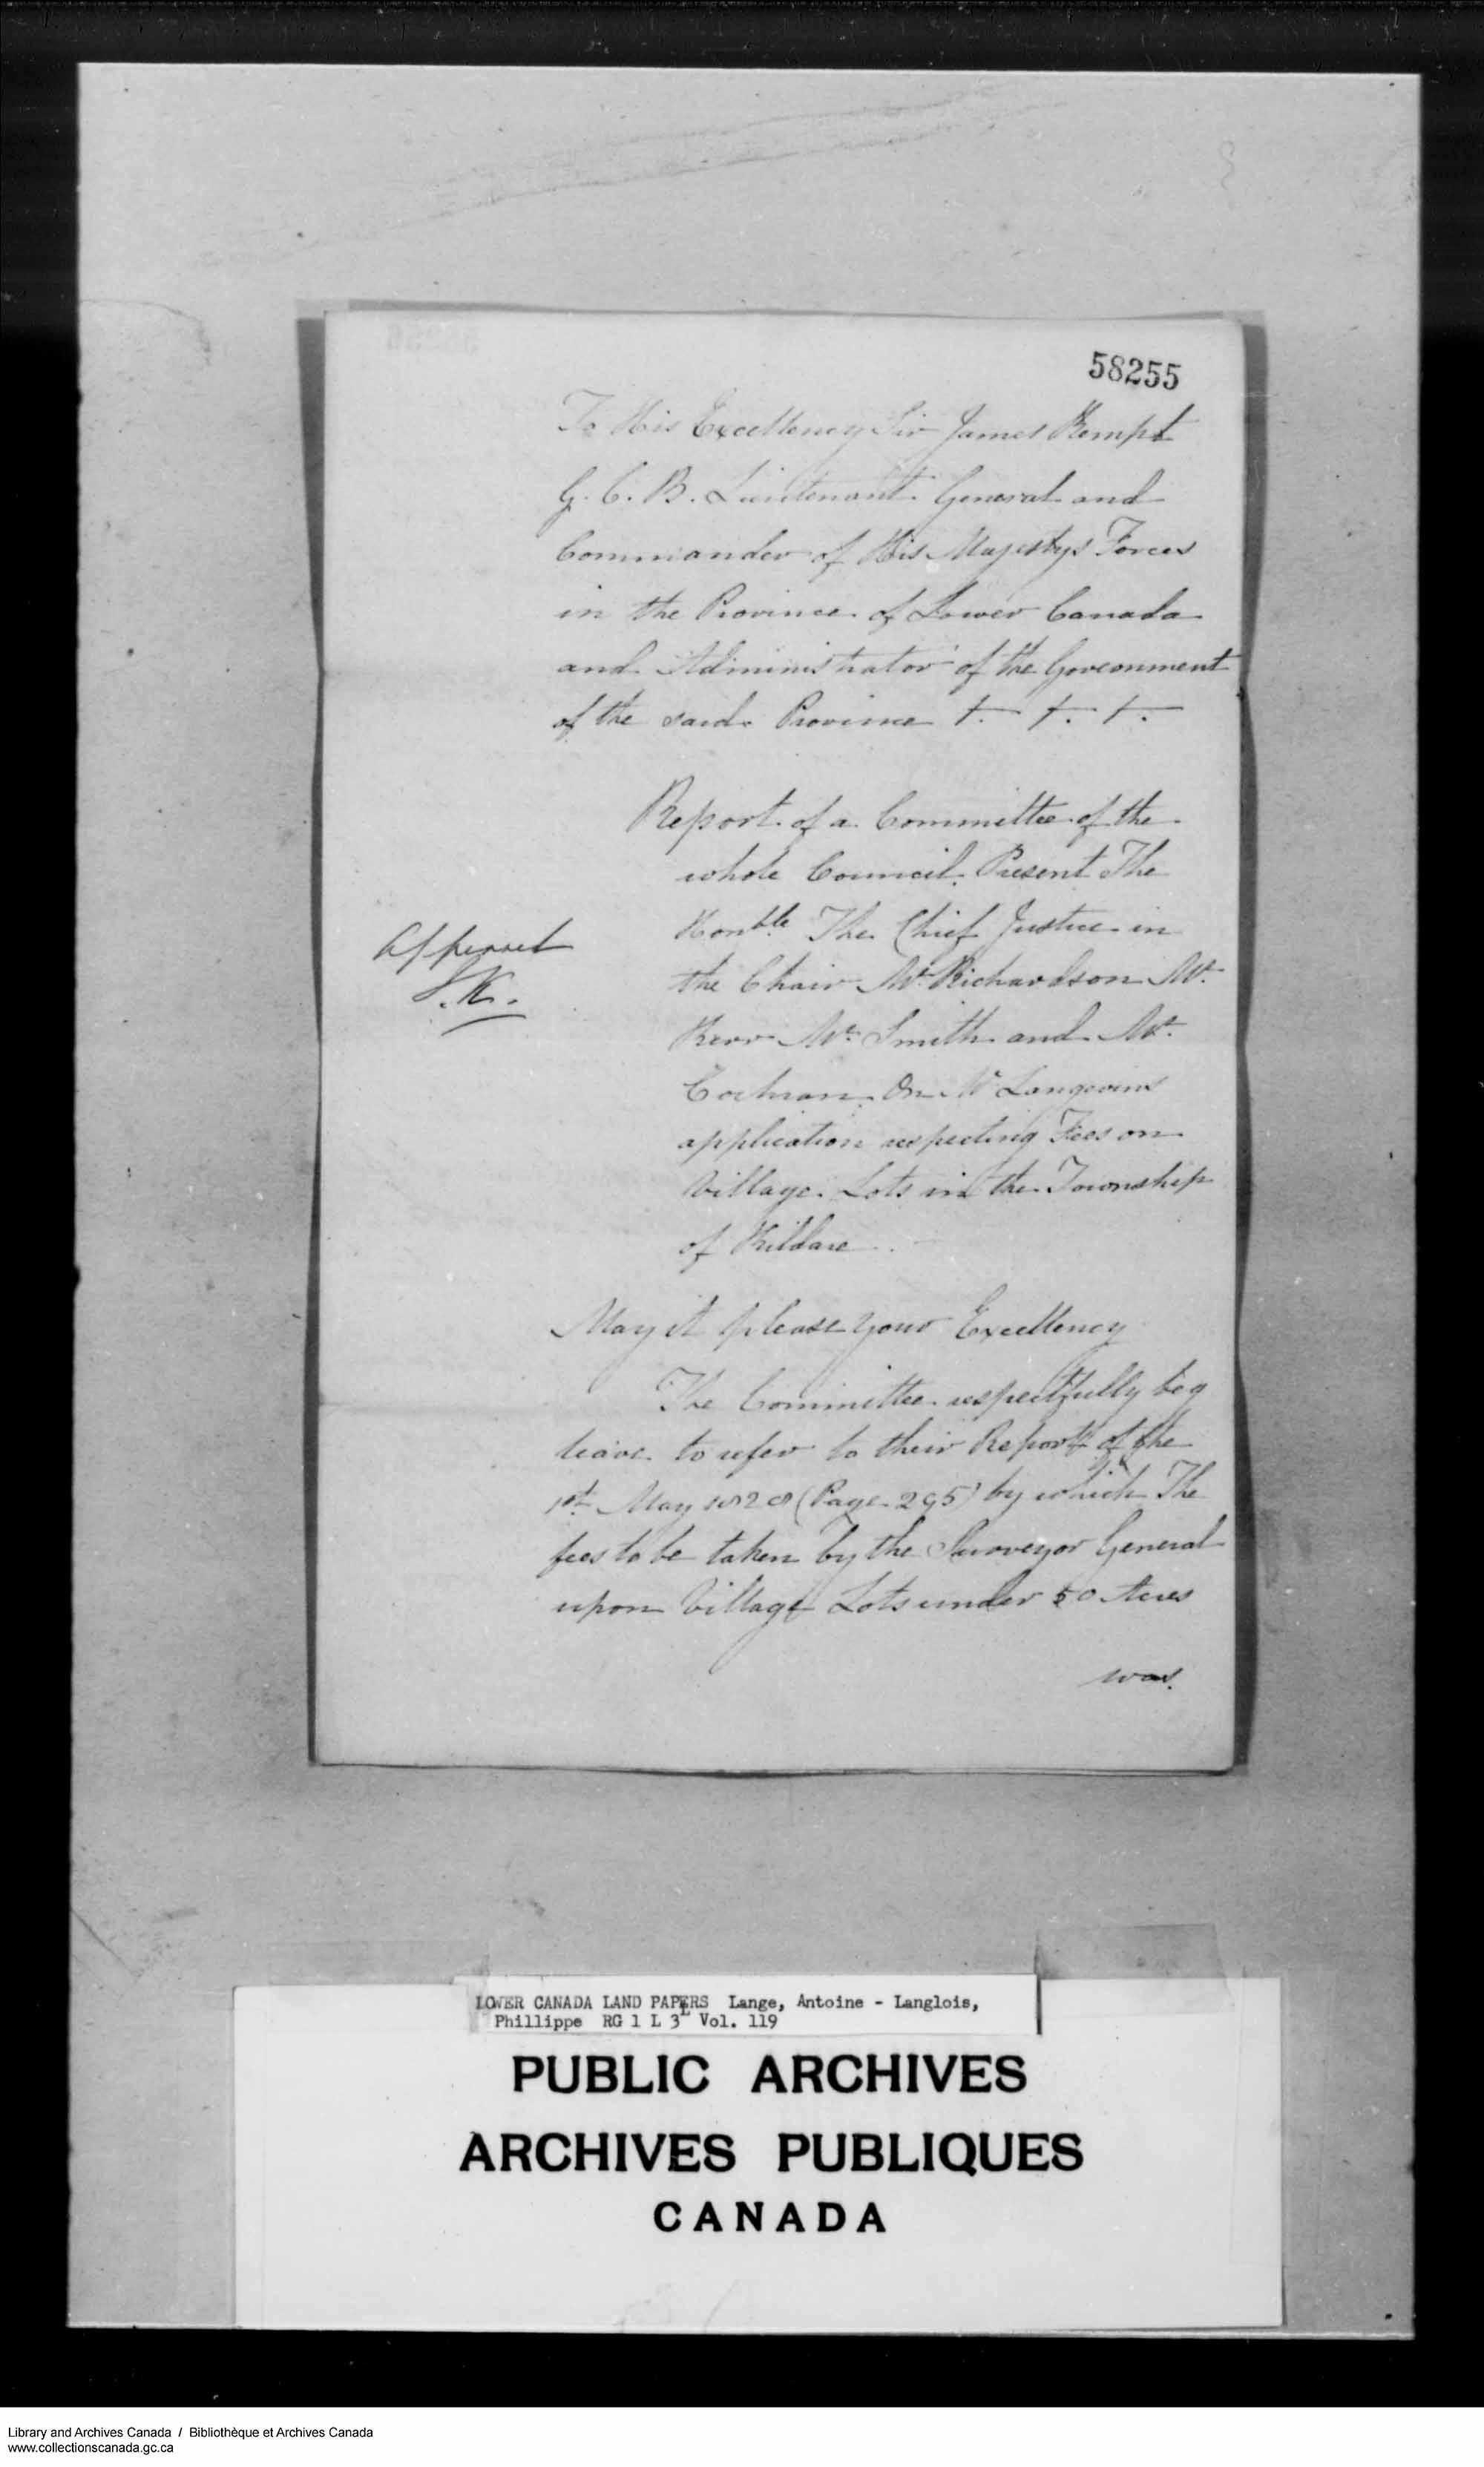 58255
To His Excellency Sir James Kempt
G. C. B. Lieutenant General and
Commander of His Majestys Forces
in the Province of Lower Canada
and Administrator of the Government
of the said Province &. &. &.
Report of a Committee of the
whole Council. Present The
Honble The Chief Justice in
the Chair Mr. Richardson Mr.
Kerr Mr. Smith and Mr.
Cochran. On Mr Langevins
application respecting Fees on
Village Lots in the Township
of Kildare.
Approved
J.K.
May it please your Excellency
The Committee respectfully beg
leave to refer to their Report of the
1st May 1828 (Page 295) by which The
fees to be taken by the Surveyor General
upon Village Lots under 50 Acres
was.
LOWER CANADA LAND PAPERS Lange, Antoine - Langlois,
Phillippe RG 1 L 3L Vol. 119
PUBLIC ARCHIVES
ARCHIVES PUBLIQUES
CANADA
Library and Archives Canada / Bibliothèque et Archives Canada
www.collectionscanada.gc.ca